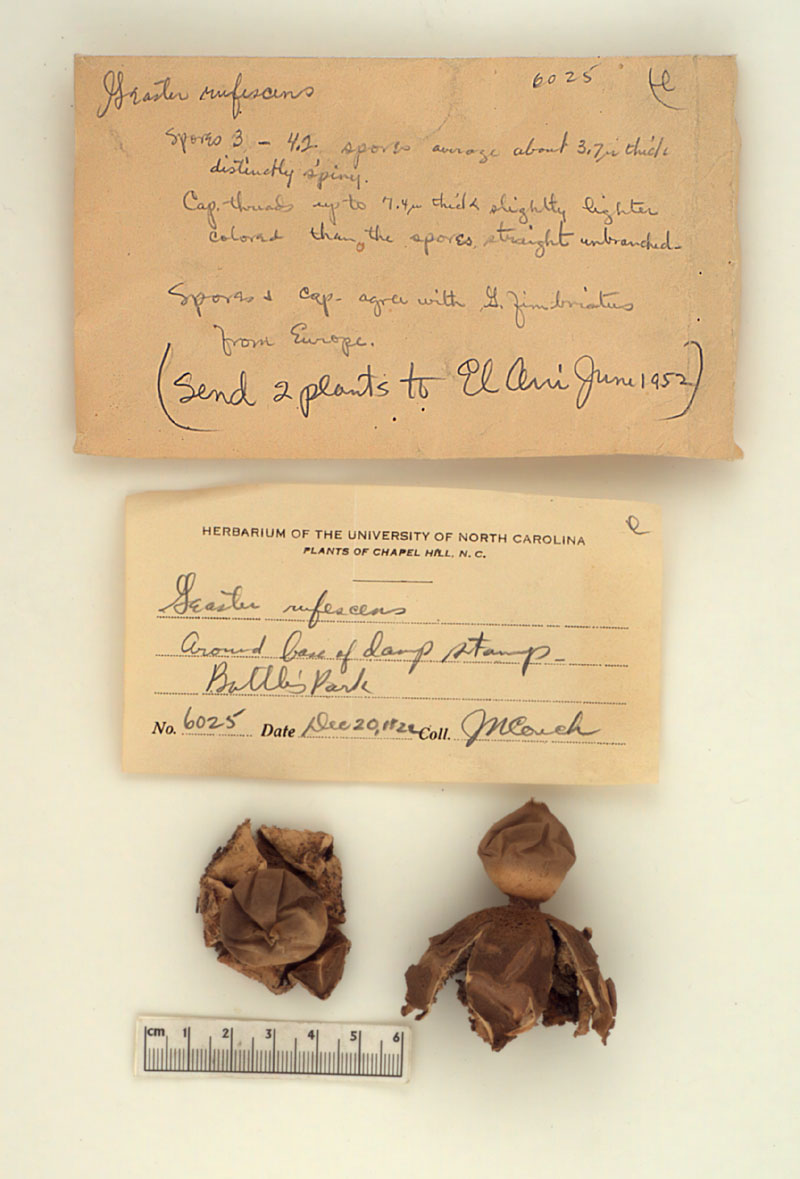 Geaster rufescens 6025
Spores 3 – 4.2 spores average about 3.7μ thick
distinctly spiny.
Cap. threads up to 7.4μ thick slightly lighter
colored than the spores, straight unbranched–
Spores & cap. agree with G. fimbriatus
from Europe.
(Send 2 plants to June 1952)
HERBARIUM OF THE UNIVERSITY OF NORTH CAROLINA
PLANTS OF CHAPEL HILL, N. C.
Geaster rufescens
Around base of damp stump–
Battle's Park
No. 6025 Date Dec 20, Coll. JNCouch
cm 1 2 3 4 5 6